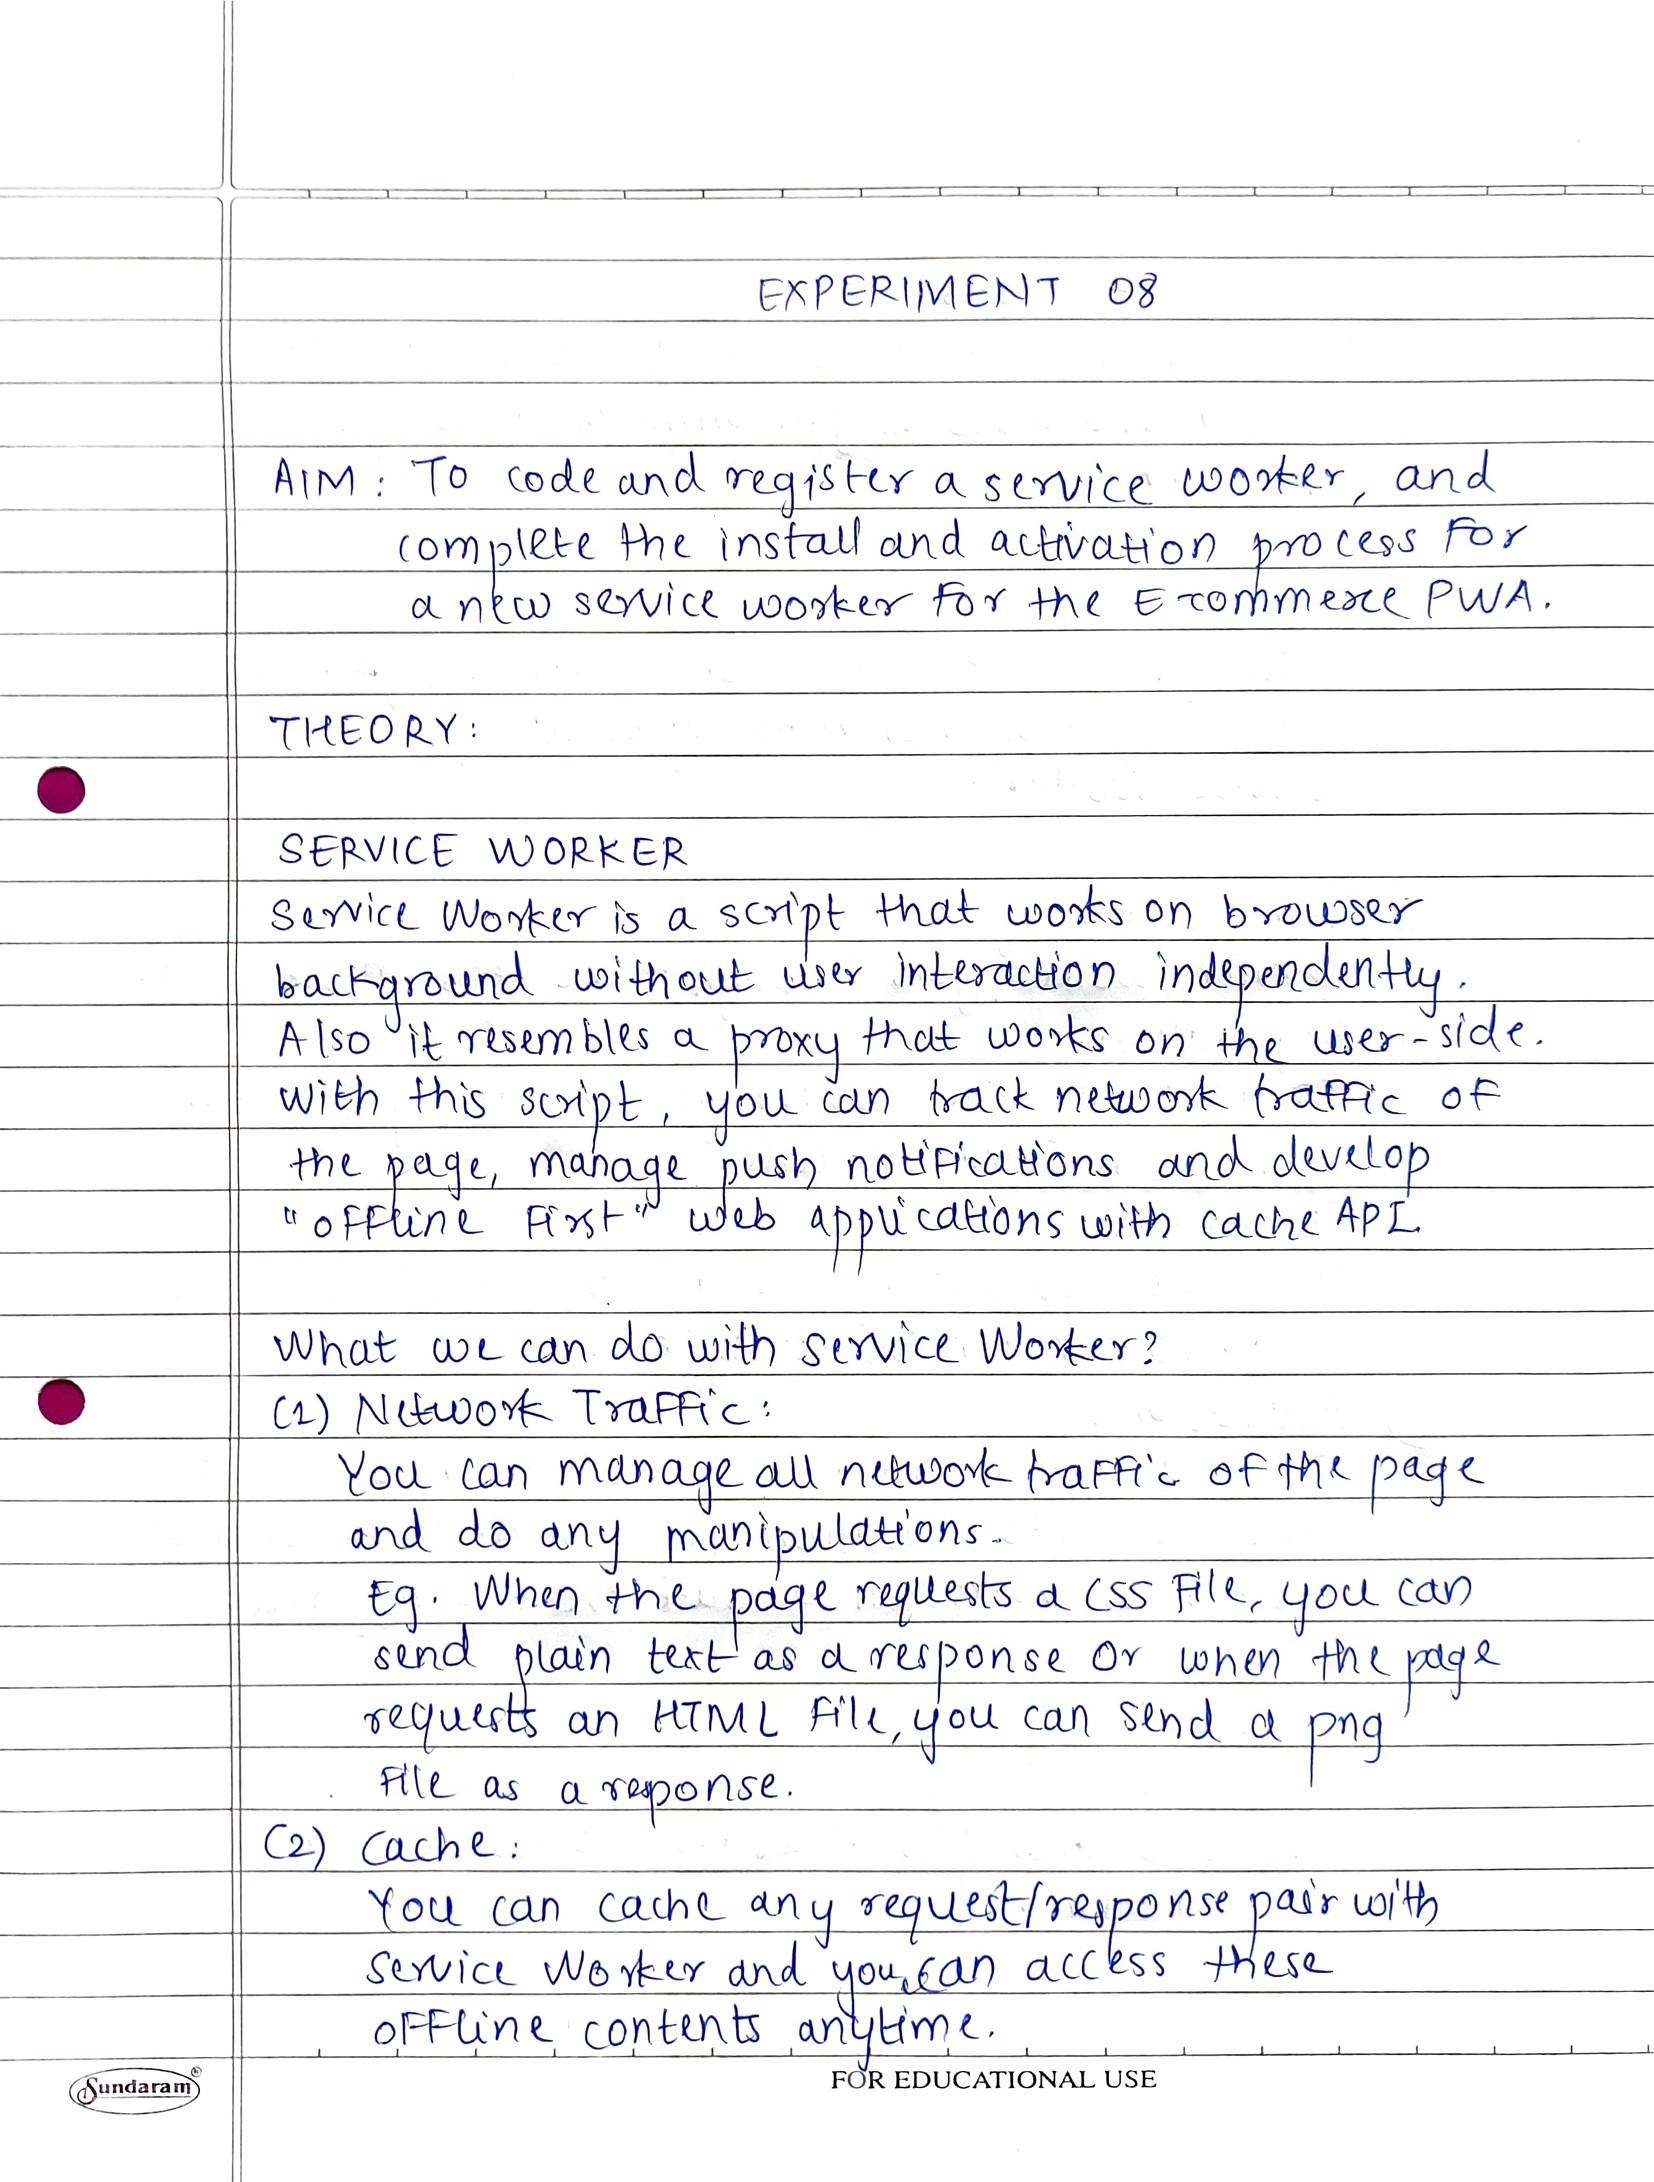 EXPERIMENT 08
AIM: To code and register a service worker, and
complete the install and activation process for
a new service worker for the E-commerce PWA.
THEORY:
SERVICE WORKER
Service Worker is a script that works on browser
background without user interaction independently.
Also it resembles a proxy that works on the user-side.
With this script, you can track network traffic of
the page, manage push notifications and develop
"offline first" web applications with cache API.
What we can do with Service Worker?
(1) Network Traffic:
You can manage all network traffic of the page
and do any manipulations.
Eg. When the page requests a CSS File, you can
send plain text as a response or when the page
requests an HTML file, you can send a png
file as a reponse.
(2) Cache:
You can cache any request/response pair with
Service Worker and you can access these
offline contents anytime.
Sundaram ®
FOR EDUCATIONAL USE